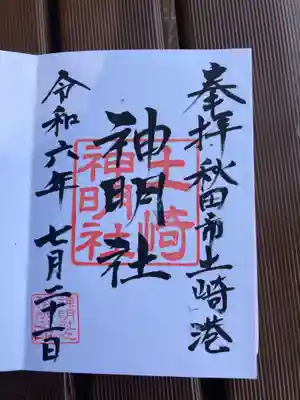 奉拝 秋田市土崎港
神明社
土崎
神明社
令和六年 七月二十一日